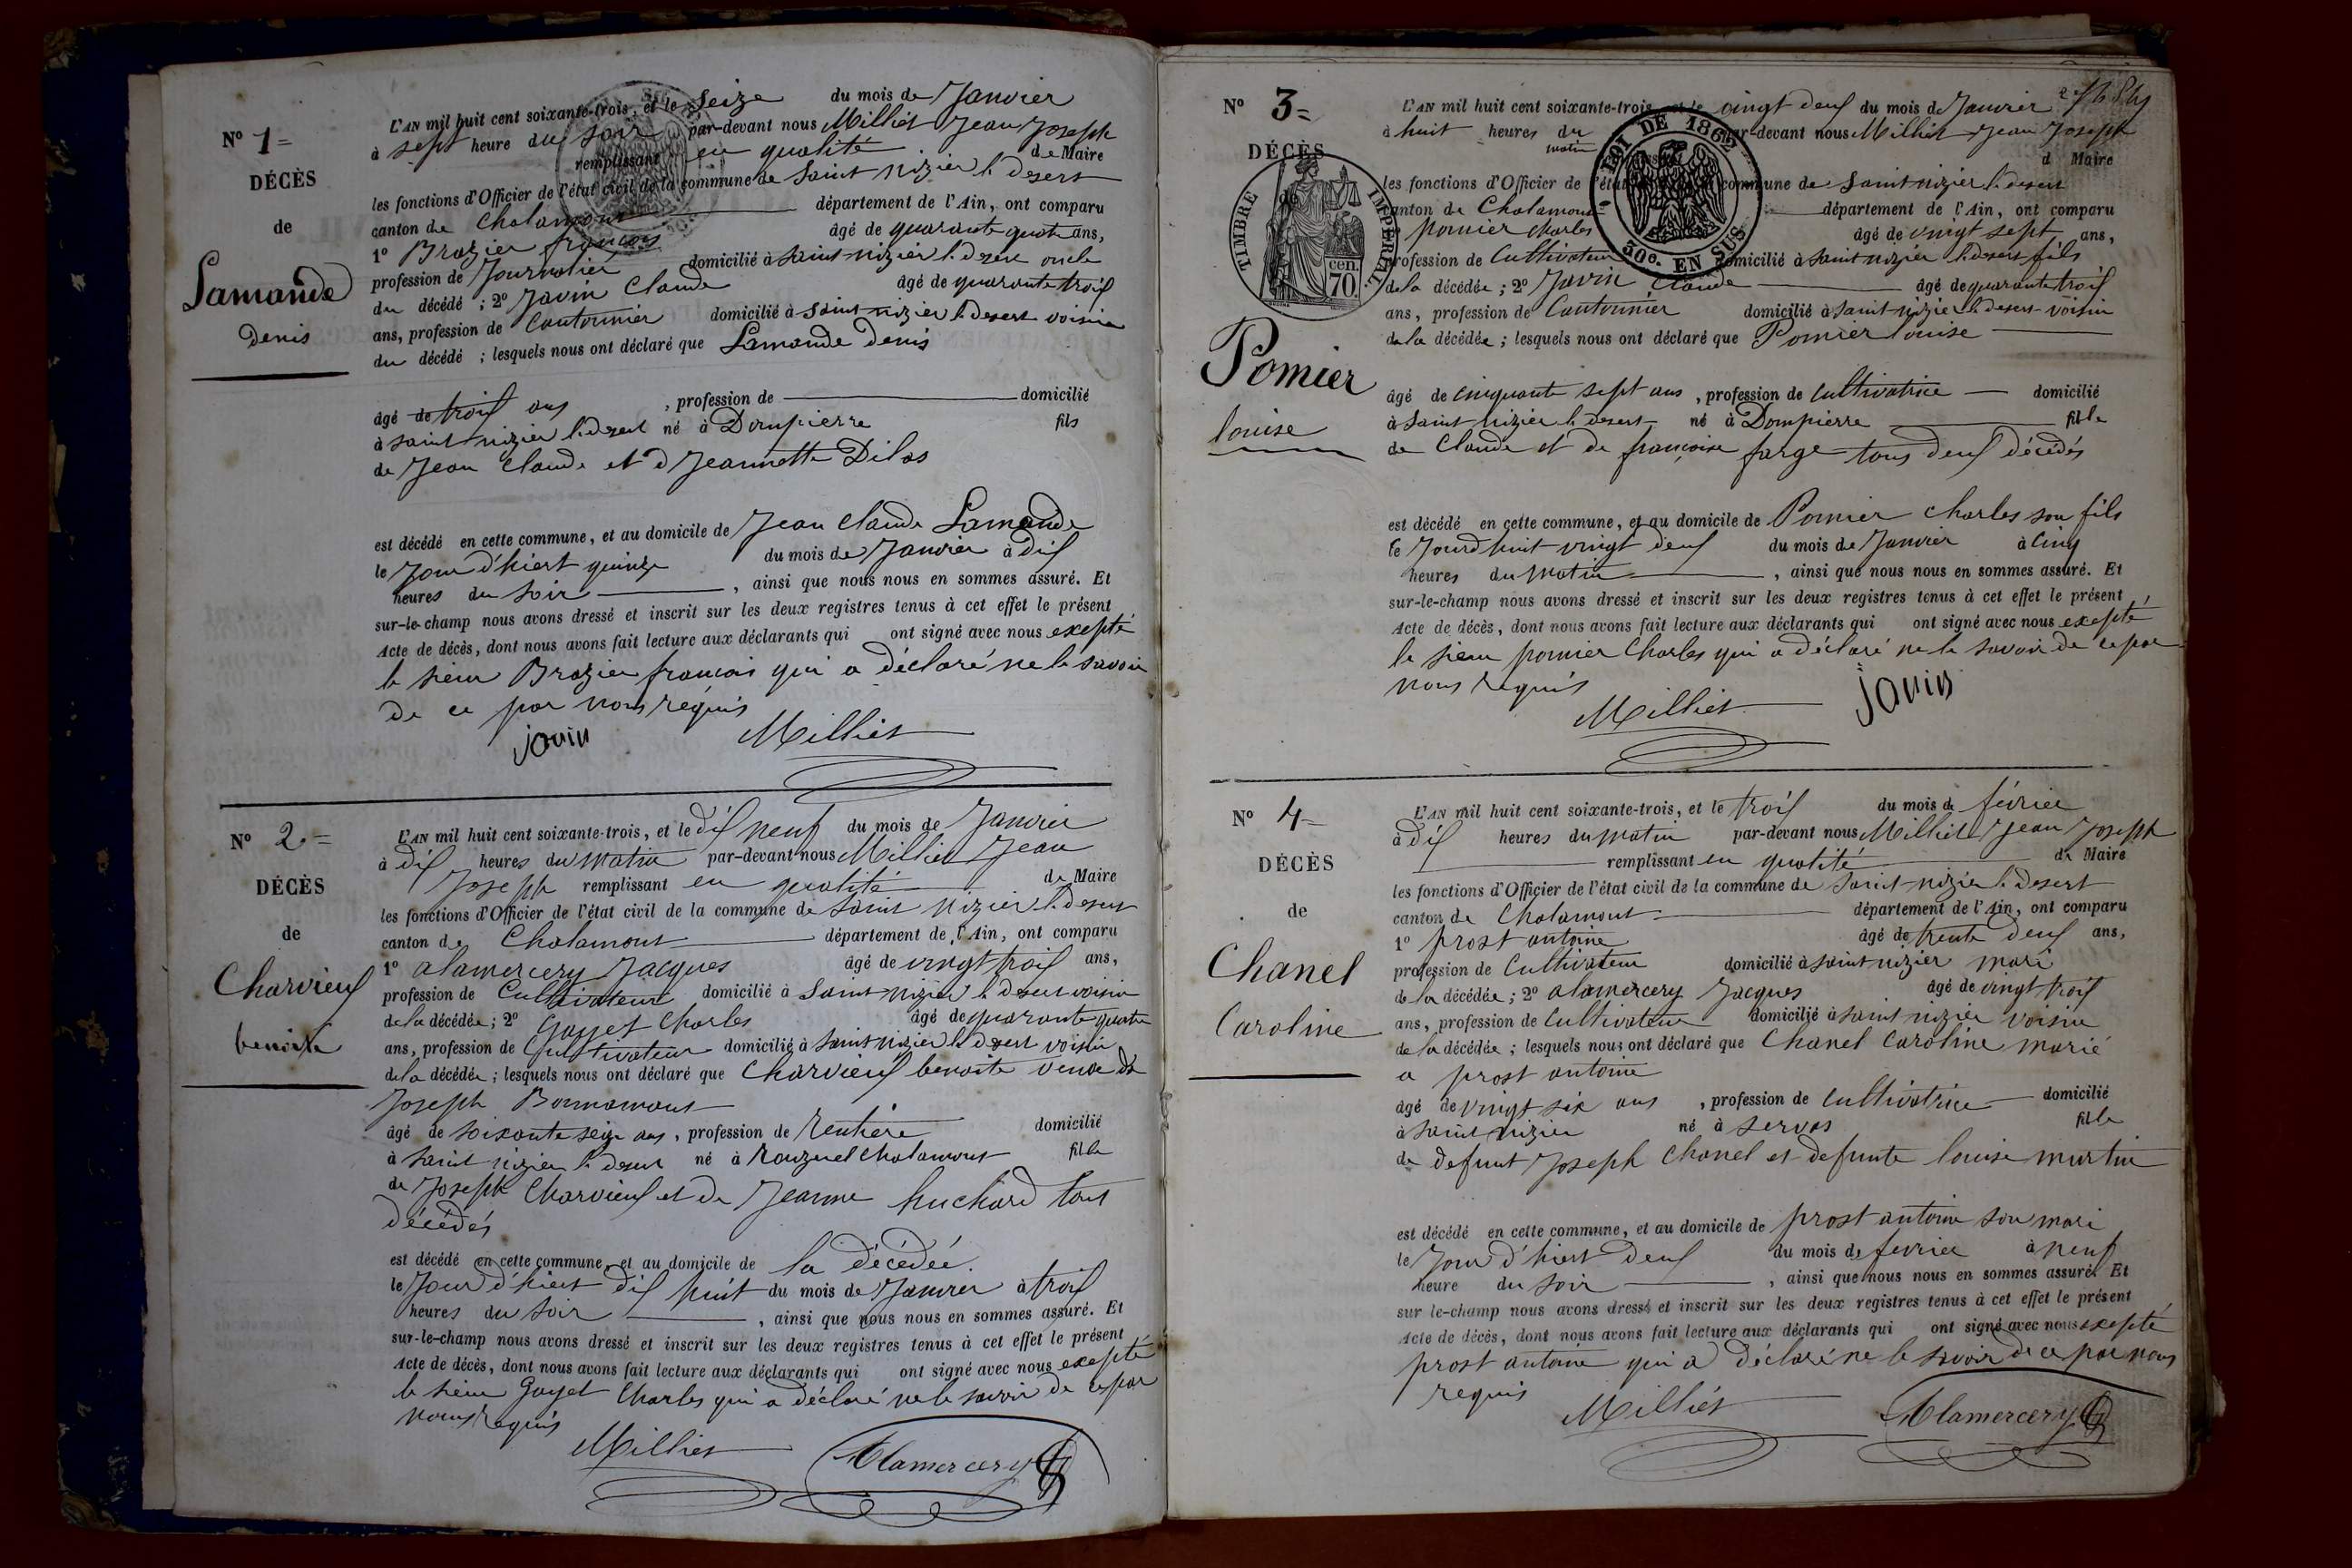 N° 1=
DÉCÈS
de
Lamande
Denis
L'AN mil huit cent soixante-trois, et le Seize du mois de Janvier
à sept heure du soir par-devant nous Milliet Jean Joseph
remplissant en qualité de Maire
les fonctions d'Officier de l'état civil de la commune de Saint nizier le desert
canton de Chalamont département de l'Ain, ont comparu
1° Brazier françois âgé de quarante quatre ans,
profession de Journalier domicilié à Saint nizier le desert oncle
du décédé ; 2° Javin Claude âgé de quarante troif
ans, profession de Cantonnier domicilié à Saint nizier le desert voisin
du décédé ; lesquels nous ont déclaré que Lamande Denis
âgé de troif ans , profession de domicilié
à saint nizier le desert né à Dompierre fils
de Jean Claude et d Jeannette Dilas
est décédé en cette commune, et au domicile de Jean Claude Lamande
le Jour d'hiert quinze du mois de Janvier à dif
heures du Soir , ainsi que nous nous en sommes assuré. Et
sur-le-champ nous avons dressé et inscrit sur les deux registres tenus à cet effet le présent
Acte de décès, dont nous avons fait lecture aux déclarants qui ont signé avec nous exepté
le sieur Brazier francois qui a déclaré ne le savoir
de ce par nous requis
javin Milliet
N° 2=
DÉCÈS
de
Charvieuf
benoite
L'AN mil huit cent soixante-trois, et le dif neuf du mois de Janvier
à dif heures du matin par-devant nous Milliet Jean
Joseph remplissant en qualité de Maire
les fonctions d'Officier de l'état civil de la commune de Saint nizier le desert
canton de Chalamont département de l'Ain, ont comparu
1° alamercery Jacques âgé de vingt troif ans,
profession de Cultivateur domicilié à Saint nizier le desert voisin
de la décédée ; 2° Gayet Charles âgé de quarante quatre
ans, profession de Cultivateur domicilié à Saint nizier le desert voisin
de la décédée ; lesquels nous ont déclaré que Charvieuf benoite veuve de
Joseph Bonnamour
âgé de soixante seize ans , profession de Rentière domicilié
à Saint nizier le desert né à Chalamont fille
de Joseph Charvieuf et de Jeanne huchard tous
décédés
est décédé en cette commune, et au domicile de la décédée.
le Jour d'hiert dif huit du mois de Janvier à troif
heures du Soir , ainsi que nous nous en sommes assuré. Et
sur-le-champ nous avons dressé et inscrit sur les deux registres tenus à cet effet le présent
Acte de décès, dont nous avons fait lecture aux déclarants qui ont signé avec nous exepté
le sieur Gayet Charles qui a déclaré ne le savoir de ce par
nous requis
Milliet Alamercery
N° 3=
DÉCÈS
de
TIMBRE IMPÉRIAL
70 cen.
LOI DE 1862
30c. EN SUS
Pomier
louise
L'AN mil huit cent soixante-trois, et le vingt deuf du mois de Janvier
à huit heures du matin par-devant nous Milliet Jean Joseph
d Maire
les fonctions d'Officier de l'état commune de Saint nizier le desert
canton de Chalamont département de l'Ain, ont comparu
pomier Charles âgé de vingt sept ans,
profession de Cultivateur domicilié à Saint nizier le desert fils
de la décédée ; 2° Javin Claude âgé de quarante troif
ans, profession de Cantonnier domicilié à Saint nizier le desert voisin
de la décédée ; lesquels nous ont déclaré que Pomier louise
âgé de cinquante sept ans , profession de Cultivatrice domicilié
à Saint nizier le desert né à Dompierre fille
de Claude et de françoise farge tous deuf décédés
est décédé en cette commune, et au domicile de Pomier Charles son fils
le Jourd huit vingt deuf du mois de Janvier à Cinq
heures du matin , ainsi que nous nous en sommes assuré. Et
sur-le-champ nous avons dressé et inscrit sur les deux registres tenus à cet effet le présent
Acte de décès, dont nous avons fait lecture aux déclarants qui ont signé avec nous exepté
le sieur pomier Charles qui a déclaré ne le savoir de ce par
nous requis
Milliet javin
N° 4=
DÉCÈS
de
Chanel
Caroline
L'AN mil huit cent soixante-trois, et le troif du mois de février
à dif heures du matin par-devant nous Milliet Jean Joseph
remplissant en qualité de Maire
les fonctions d'Officier de l'état civil de la commune de Saint nizier le desert
canton de Chalamont département de l'Ain, ont comparu
1° prost antoine âgé de trente deuf ans,
profession de Cultivateur domicilié à Saint nizier mari
de la décédée ; 2° alamercery Jacques âgé de vingt troif
ans, profession de Cultivateur domicilié à Saint nizier voisin
de la décédée ; lesquels nous ont déclaré que Chanel Caroline marié
a prost antoine
âgé de vingt six ans , profession de Cultivatrice domicilié
à Saint nizier né à Servas fille
de defunt Joseph Chanel et defunte louise martin
est décédé en cette commune, et au domicile de prost antoine son mari
le Jour d'hiert deuf du mois de fevrier à neuf
heure du soir , ainsi que nous nous en sommes assuré. Et
sur le-champ nous avons dressé et inscrit sur les deux registres tenus à cet effet le présent
Acte de décès, dont nous avons fait lecture aux déclarants qui ont signé avec nous exepté
prost antoine qui a déclaré ne le savoir de ce par nous
requis
Milliet Alamercery